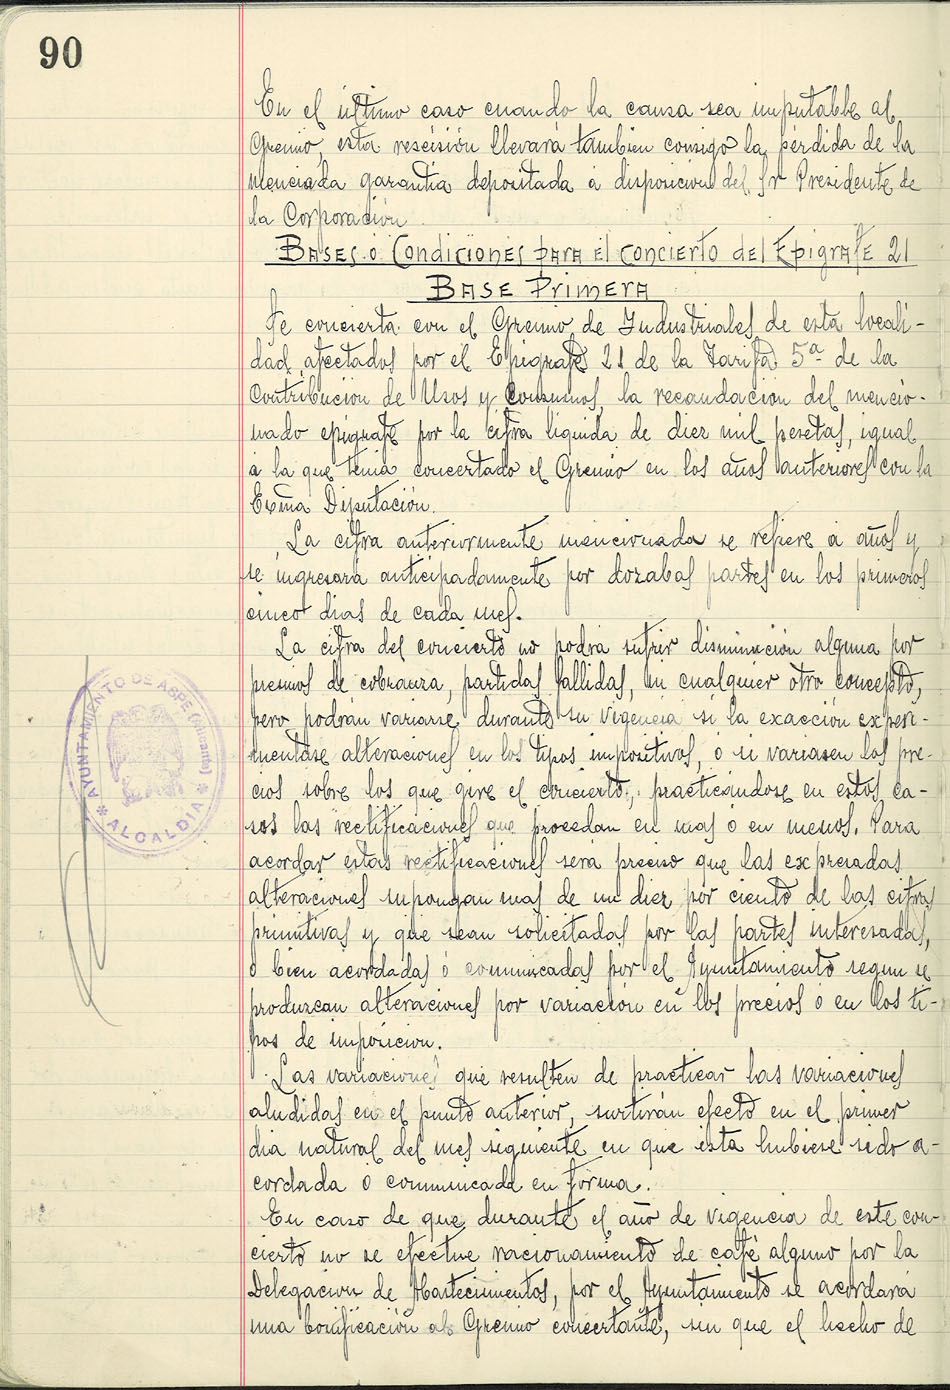 90
En el último caso cuando la causa sea imputable al
Gremio, esta rescisión llevará también consigo la pérdida de la
menciada garantia depositada á disposicion del Sr Presidente de
la Corporación
BASES ó CONDICIONES PARA El CONCIERTO DEL EPIGRAFE 21
BASE PRIMERA
Se concierta con el Gremio de Industriales de esta locali-
dad, afectados por el Epigrafe 21 de la Tarifa 5ª de la
Contribución de Usos y Consumos, la recaudación del mencio-
nado epigrafe por la cifra liquida de diez mil pesetas, igual
á la que tenia concertado el Gremio en los años anteriores con la
Exma Diputación.
La cifra anteriormente mencionada se refiere á años y
se ingresará anticipadamente por dozabas partes en los primeros
cinco dias de cada mes.
La cifra del concierto no podrá sufrir disminución alguna por
premios de cobranza, partidas fallidas, ni cualquier otro concepto,
pero podrán variarse durante su vigencia si la exacción experi-
mentase alteraciones en los tipos impositivos, ó si variasen los pre-
cios sobre los que gire el concierto, practicándose en estos ca-
sos las rectificaciones que procedan en mas ó en menos. Para
acordar estas rectificaciones será preciso que las expresadas
alteraciones supongan mas de un diez por ciento de las cifras
primitivas y que sean solicitadas por las partes interesadas,
ó bien acordadas ó comunicadas por el Ayuntamiento segun se
produzcan alteraciones por variación en los precios ó en los ti-
pos de imposicion.
Las variaciones que resulten de practicar las variaciones
aludidas en el punto anterior, surtirán efecto en el primer
dia natural del mes siguiente en que esta hubiese sido a-
cordada ó comunicada en forma.
En caso de que durante el año de vigencia de este con-
cierto no se efectue racionamiento de café alguno por la
Delegacion de Abastecimientos, por el Ayuntamiento se acordará
una bonificación al Gremio concertante, sin que el hecho de
AYUNTAMIENTO DE ASPE (Alicante)
* ALCALDIA *